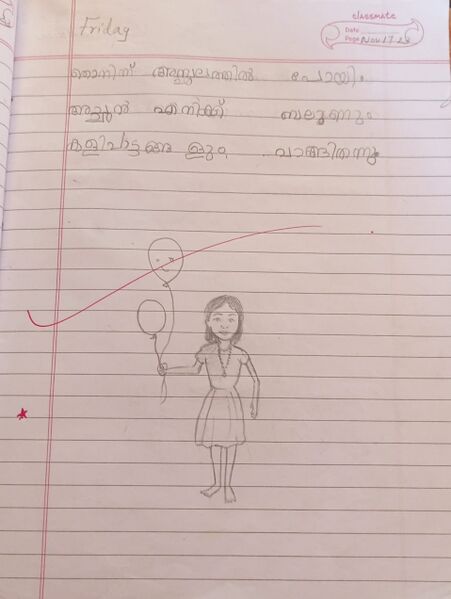 Friday
classmate
Date
Page Nov 17 23
ഞാനിന്ന് അമ്പലത്തിൽ പോയി.
അച്ഛൻ എനിക്ക് ബലൂണും
കളിപാട്ടങ്ങ ളും വാങ്ങിതന്നു